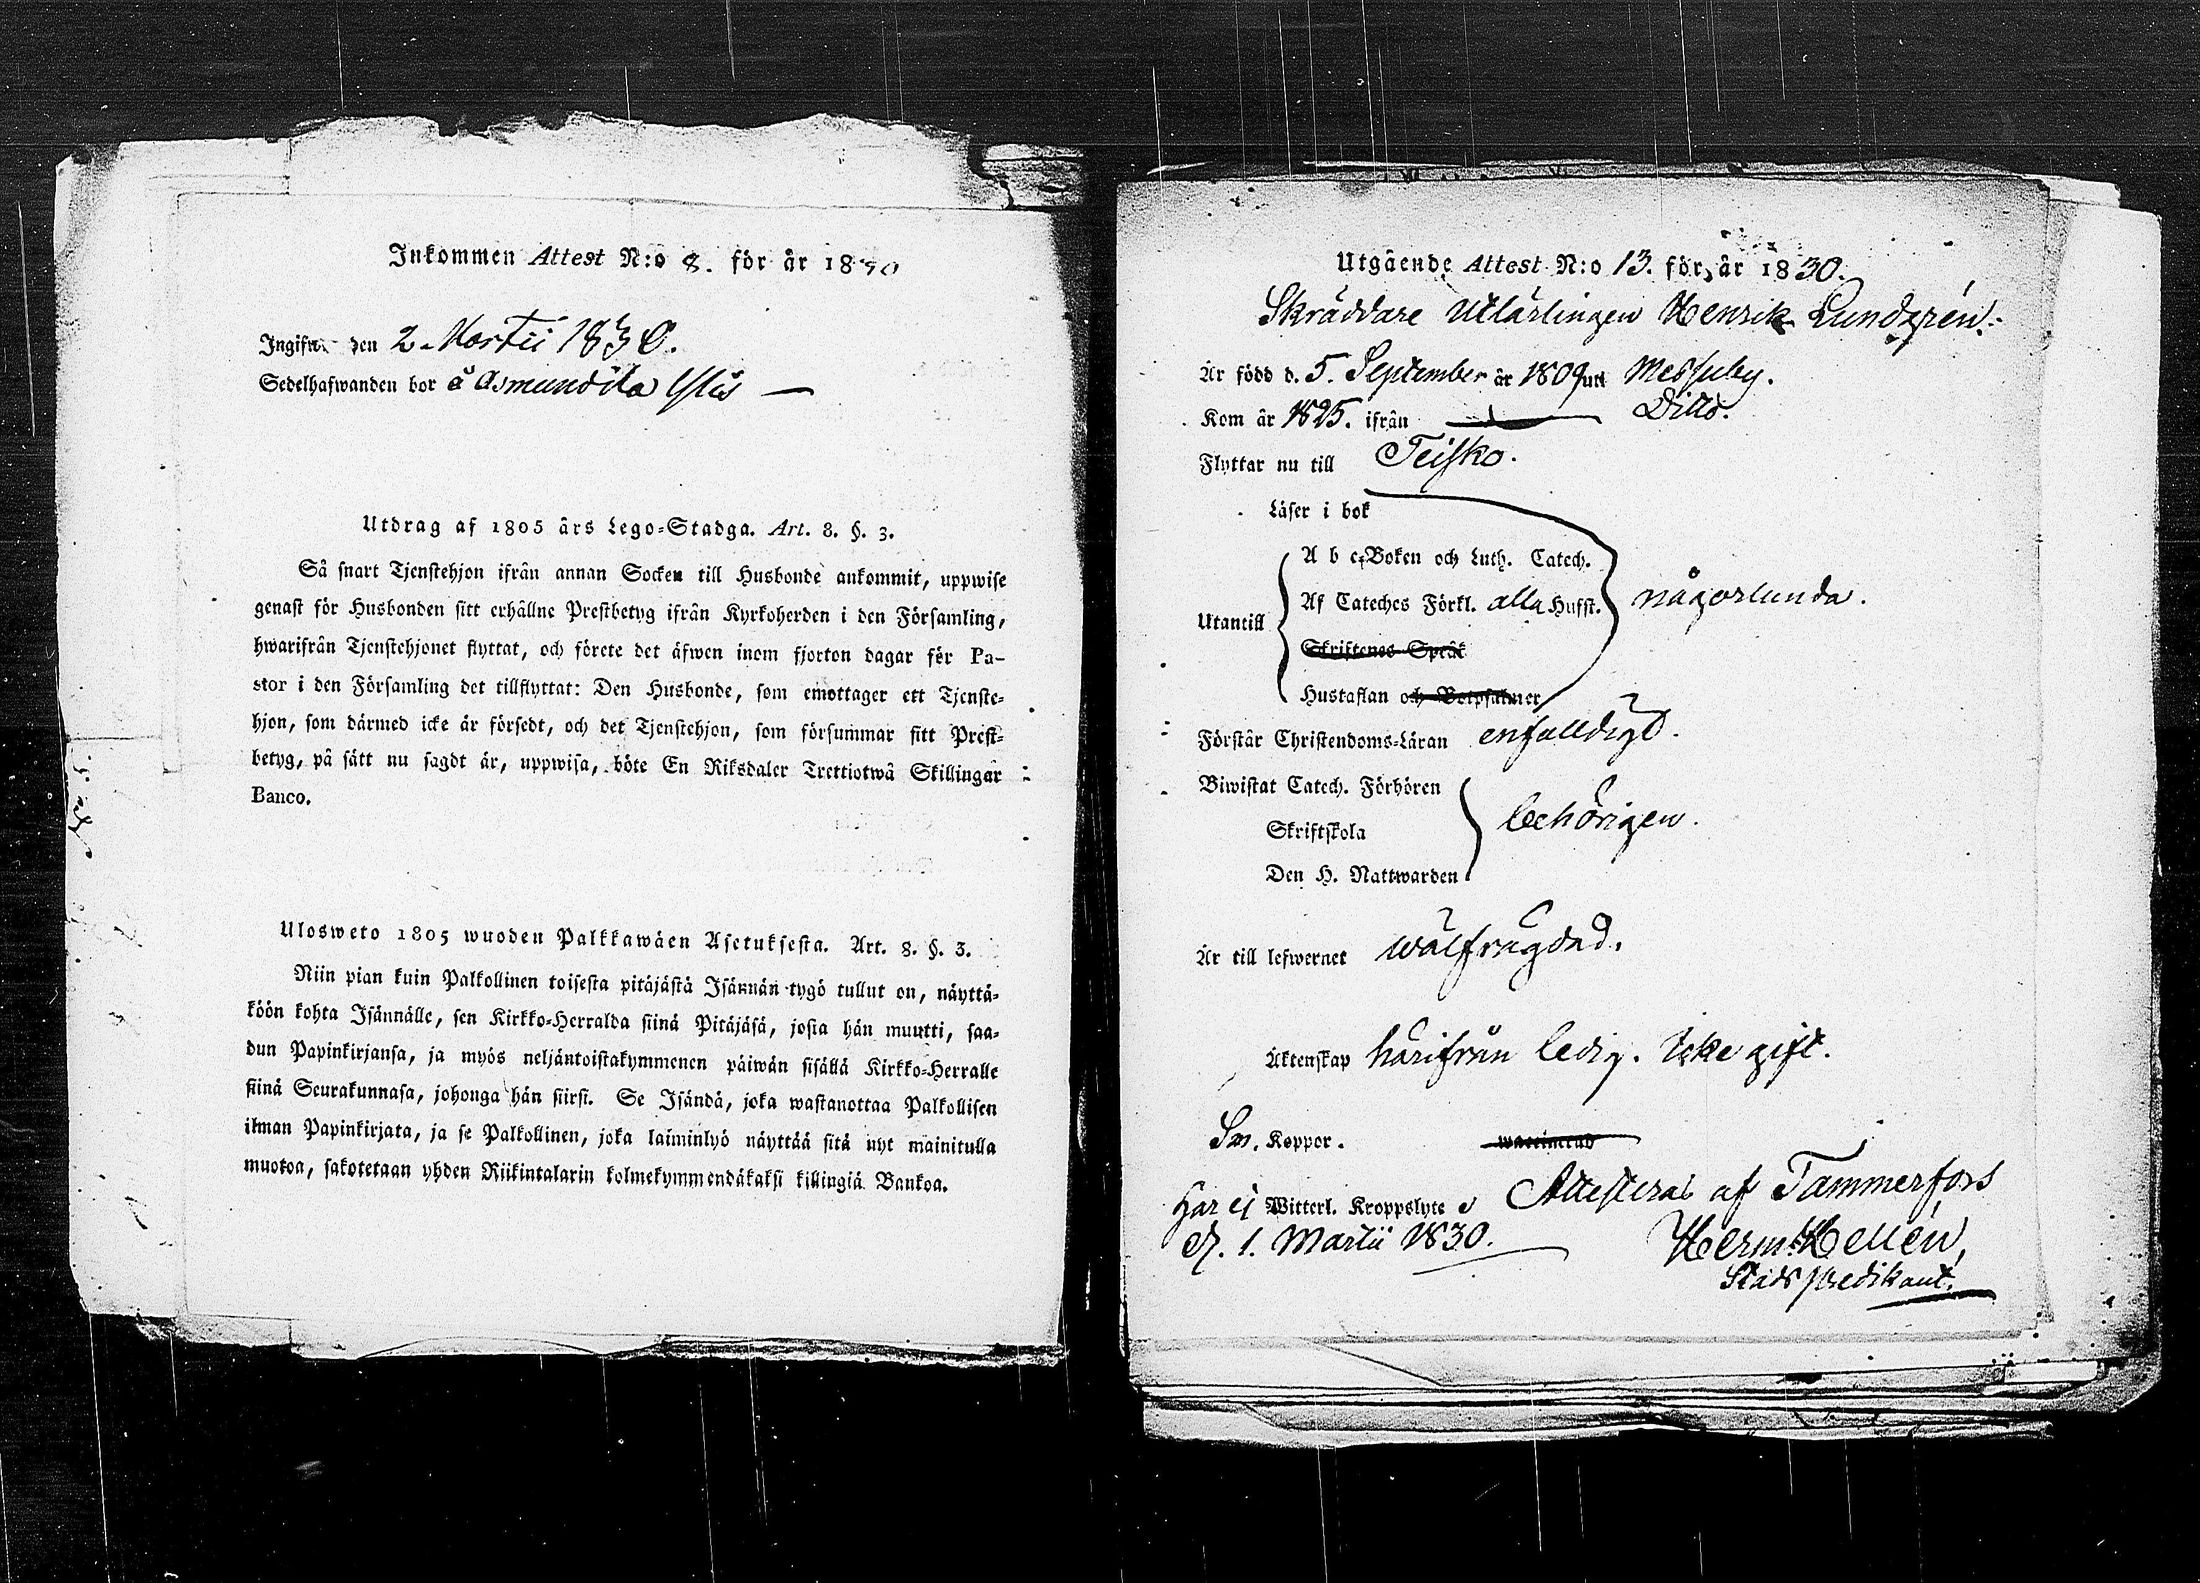 Inkommen Attest N:o 8. för år 1830
Ingifw. den 2. Martii 1830.
Sedelhafwanden bor å Asmundila
Utdrag af 1805 års Lego-Stadga. Art. 8. §. 3.
Så snart Tjenstehjon ifrån annan Socken till Husbonde ankommit, uppwise
genast för Husbonden sitt erhållne Prestbetyg ifrån Kyrkoherden i den Församling,
hwarifrån Tjenstehjonet flyttat, och förete det äfwen inom fjorton dagar för Pa-
stor i den Församling det tillflyttat: Den Husbonde, som emottager ett Tjenste-
hjon, som därmed icke är försedt, och det Tjenstehjon, som försummar sitt Prest-
betyg, på sätt nu sagdt är, uppwisa, böte En Riksdaler Trettiotwå Skillingar
Banco.
Ulosweto 1805 wuoden Palkkawäen Asetuksesta. Art. 8. §. 3.
Niin pian kuin Palkollinen toisesta pitäjästä Isännän tygö tullut on, näyttä-
köön kohta Isännälle, sen Kirkko-Herralda siinä Pitäjäsä, josta hän muutti, saa-
dun Papinkirjansa, ja myös neljäntoistakymmenen päiwän sisällä Kirkko-Herralle
siinä Seurakunnasa, johonga hän siirsi. Se Isändä, joka wastanottaa Palkollisen
ilman Papinkirjata, ja se Palkollinen, joka laiminlyö näyttää sitä nyt mainitulla
muotoa, sakotetaan yhden Riikintalarin kolmekymmendäkaksi killingiä Bankoa.
Utgående Attest N:o 13. för år 1830.
Skräddare Utlärlingen Henrik Lundgrén.
Är född d. 5. September år 1809 uti Messuby.
Kom år 1825. ifrån Ditto.
Flyttar nu till Teisko.
Läser i bok
A b c-Boken och Luth. Catech.
Utantill
Af Cateches Förkl. alla Husst. någorlunda.
Skriftenes Språk
Hustaflan och Botpsalmer
Förstår Christendoms-Läran enfalldigt.
Biwistat Catech. Förhören
Skriftskola behörigen.
Den H. Nattwarden
Är till lefwernet wälfrägdad.
Äktenskap härifrån ledig. Icke gift.
Koppor. waccinerad
Har ej Witterl. Kroppslyte Attesteras af Tammerfors
d. 1. Martii 1830. Herm. Hellén,
Stads Predikant.